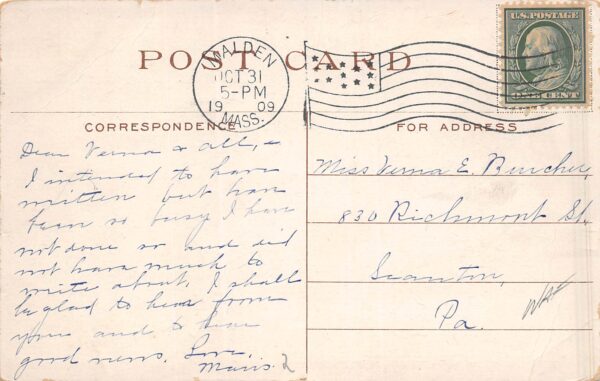 U.S. POSTAGE
ONE CENT
POST CARD
MALDEN
OCT 31
5-PM
1909
MASS.
CORRESPONDENCE
FOR ADDRESS
Dear Verna & all, –
I intended to have
written but have
been so busy I have
not done so and did
not have much to
write about. I shall
be glad to hear from
you and to hear
good news. Love,
Miss Verna E. Burcher,
830 Richmont St.
Scranton,
Pa.